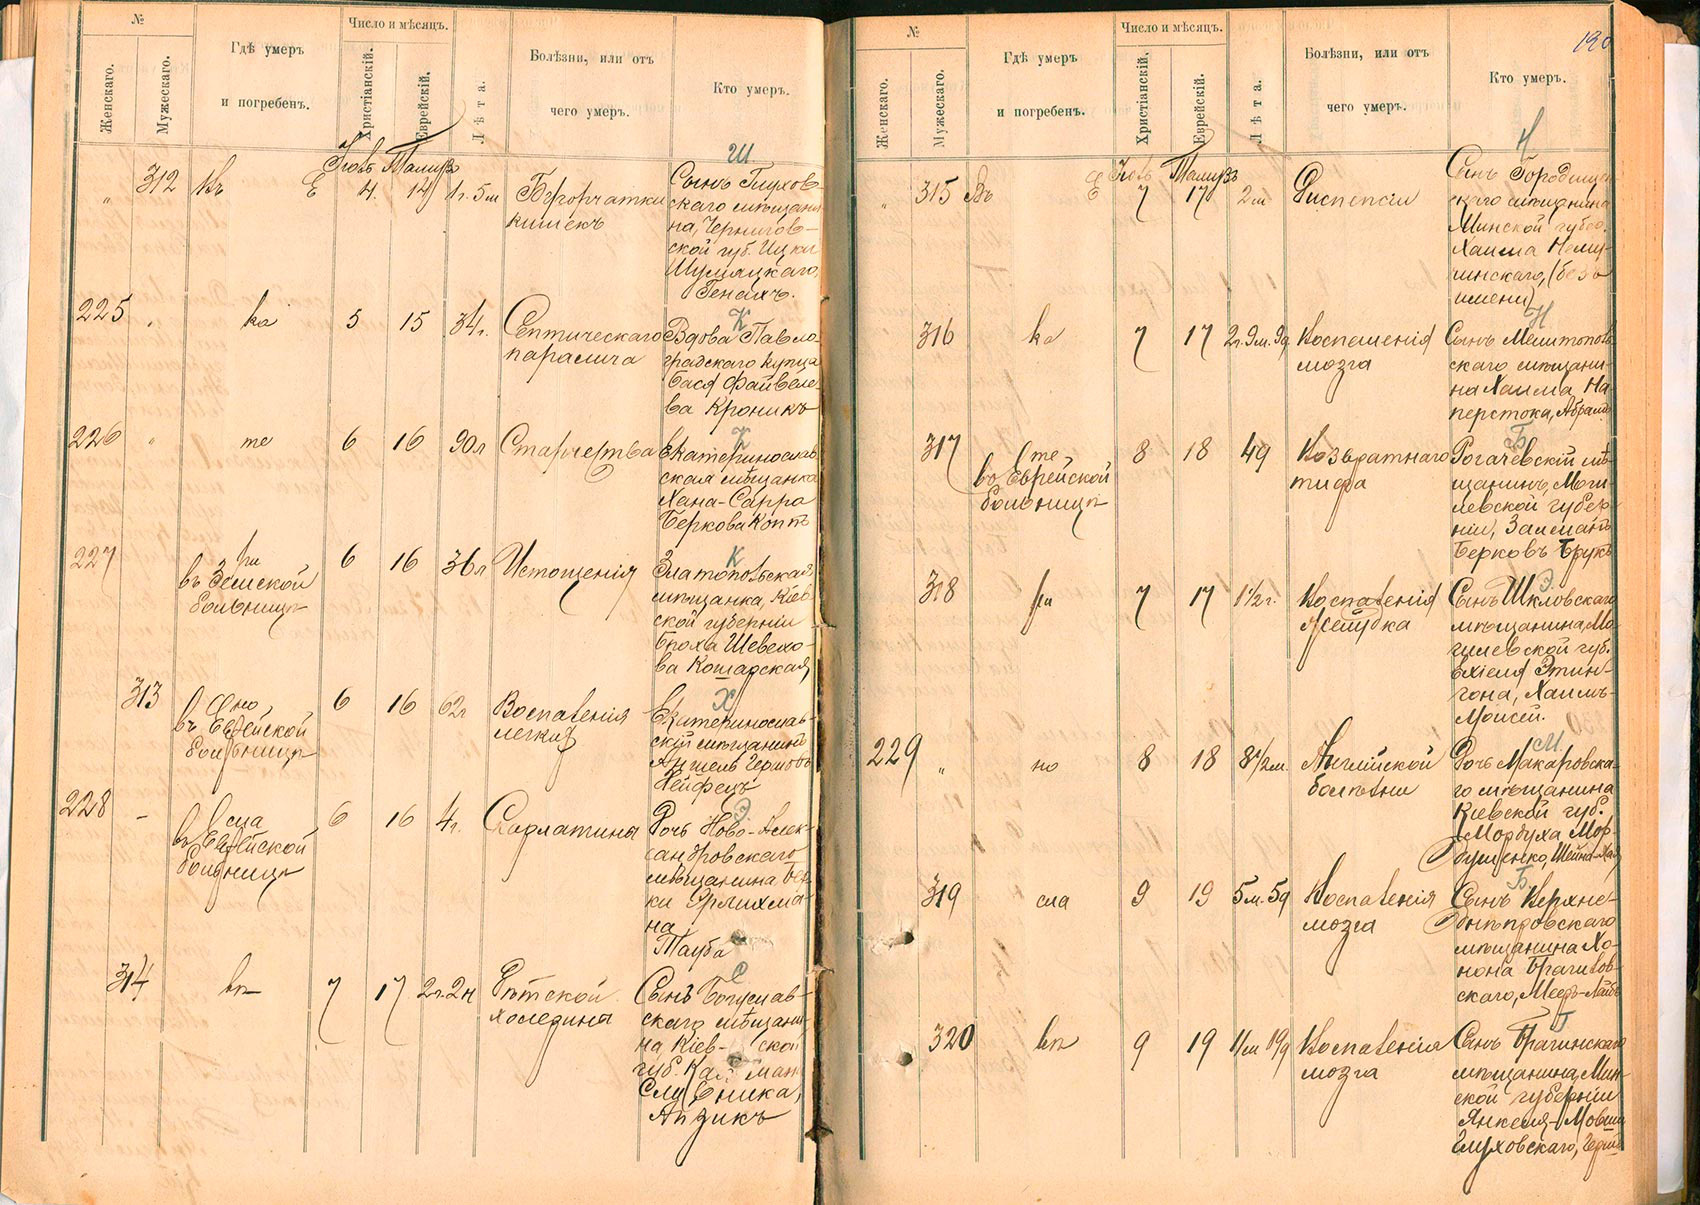 №
Число и мѣсяцъ.
Женскаго.
Мужескаго.
Гдѣ умеръ
и погребенъ.
Христіанскій.
Еврейскій.
Лѣта.
Болѣзни, или отъ
чего умеръ.
Кто умеръ.
Ш
Іюль Тамузъ
312 Въ Е 4. 14 1г. 5м
Бугорчатки
кишекъ
Сынъ Глухов-
скаго мѣщани
на, Чернигов-
ской губ. Ицки
Шумяцкаго,
Генахъ.
К
225 ка 5 15 34г.
Септическаго
паралича
Вдова Павло-
градскаго купца
Бася Файвеле-
ва Кроникъ
К
226 те 6 16 90л Старчества
Екатеринослав
ская мѣщанка
Хана-Сарра
Беркова Коппъ
К
227 ри 6 16 36л Истощенія
въ Земской
больницѣ
Златопольская
мѣщанка, Кіев
ской губерніи
Броха Шевело-
ва Кошарская
Х
313 но 6 16 62г
въ Еврейской
больницѣ
Воспаленія
легкихъ
Екатеринослав-
скій мѣщанинъ
Аншель Гершовъ
Хейфецъ
Э
228 сла 6 16 4г. Скарлатины
въ Еврейской
больницѣ
Дочь Ново-Алек-
сандровскаго
мѣщанина Бер-
ки Эрлихма-
на
Тауба
С
314 вѣ 7 17 2г. 2н
Дѣтской
холерины
Сынъ Богуслав-
скаго мѣщани-
на Кіев- ской
губ. Кал ман
Слу вника,
Айзикъ
190
№
Число и мѣсяцъ.
Женскаго.
Мужескаго.
Гдѣ умеръ
и погребенъ.
Христіанскій.
Еврейскій.
Лѣта.
Болѣзни, или отъ
чего умеръ.
Кто умеръ.
Н
Іюль Тамузъ
315 Въ Е 7 17 2м Диспепсіи
Сынъ Городищен
скаго мѣщанина
Минской губер.
Хаима Нему-
шинскаго, (безъ
имени)
Н
316 ка 7 17 2г. 9м. 9д
Воспаленія
мозга
Сынъ Мелитополь
скаго мѣщани-
на Хаима На-
перстока, Абрамъ
Б
317 те 8 18 49
въ Еврейской
больницѣ
Возвратнаго
тифа
Рогачевскій мѣ-
щанинъ, Моги-
левской губер-
ніи, Залманъ
Берковъ Брукъ
Э
318 ри 7 17 1 1/2 г.
Воспаленія
желудка
Сынъ Шкловскаго
мѣщанина, Мо-
гилевской губ.
Ехіеля Этин-
гона, Хаимъ-
Мойсей.
М
229 но 8 18 8 1/2 м.
Англійской
болѣзни
Дочь Макаровска-
го мѣщанина
Кіевской губ.
Мордуха Мор-
душенко, Шейна-Хая
Б
319 сла 9 19 5м. 5д
Воспаленія
мозга
Сынъ Верхне-
днѣпровскаго
мѣщанина Хо-
нона Брагилев-
скаго, Мееръ-Лейбъ
Г
320 вѣ 9 19 11м 19д
Воспаленія
мозга
Сынъ Брагинскаго
мѣщанина, Мин-
ской губерніи
Янкеля-Мовши
Глуховскаго, Герш